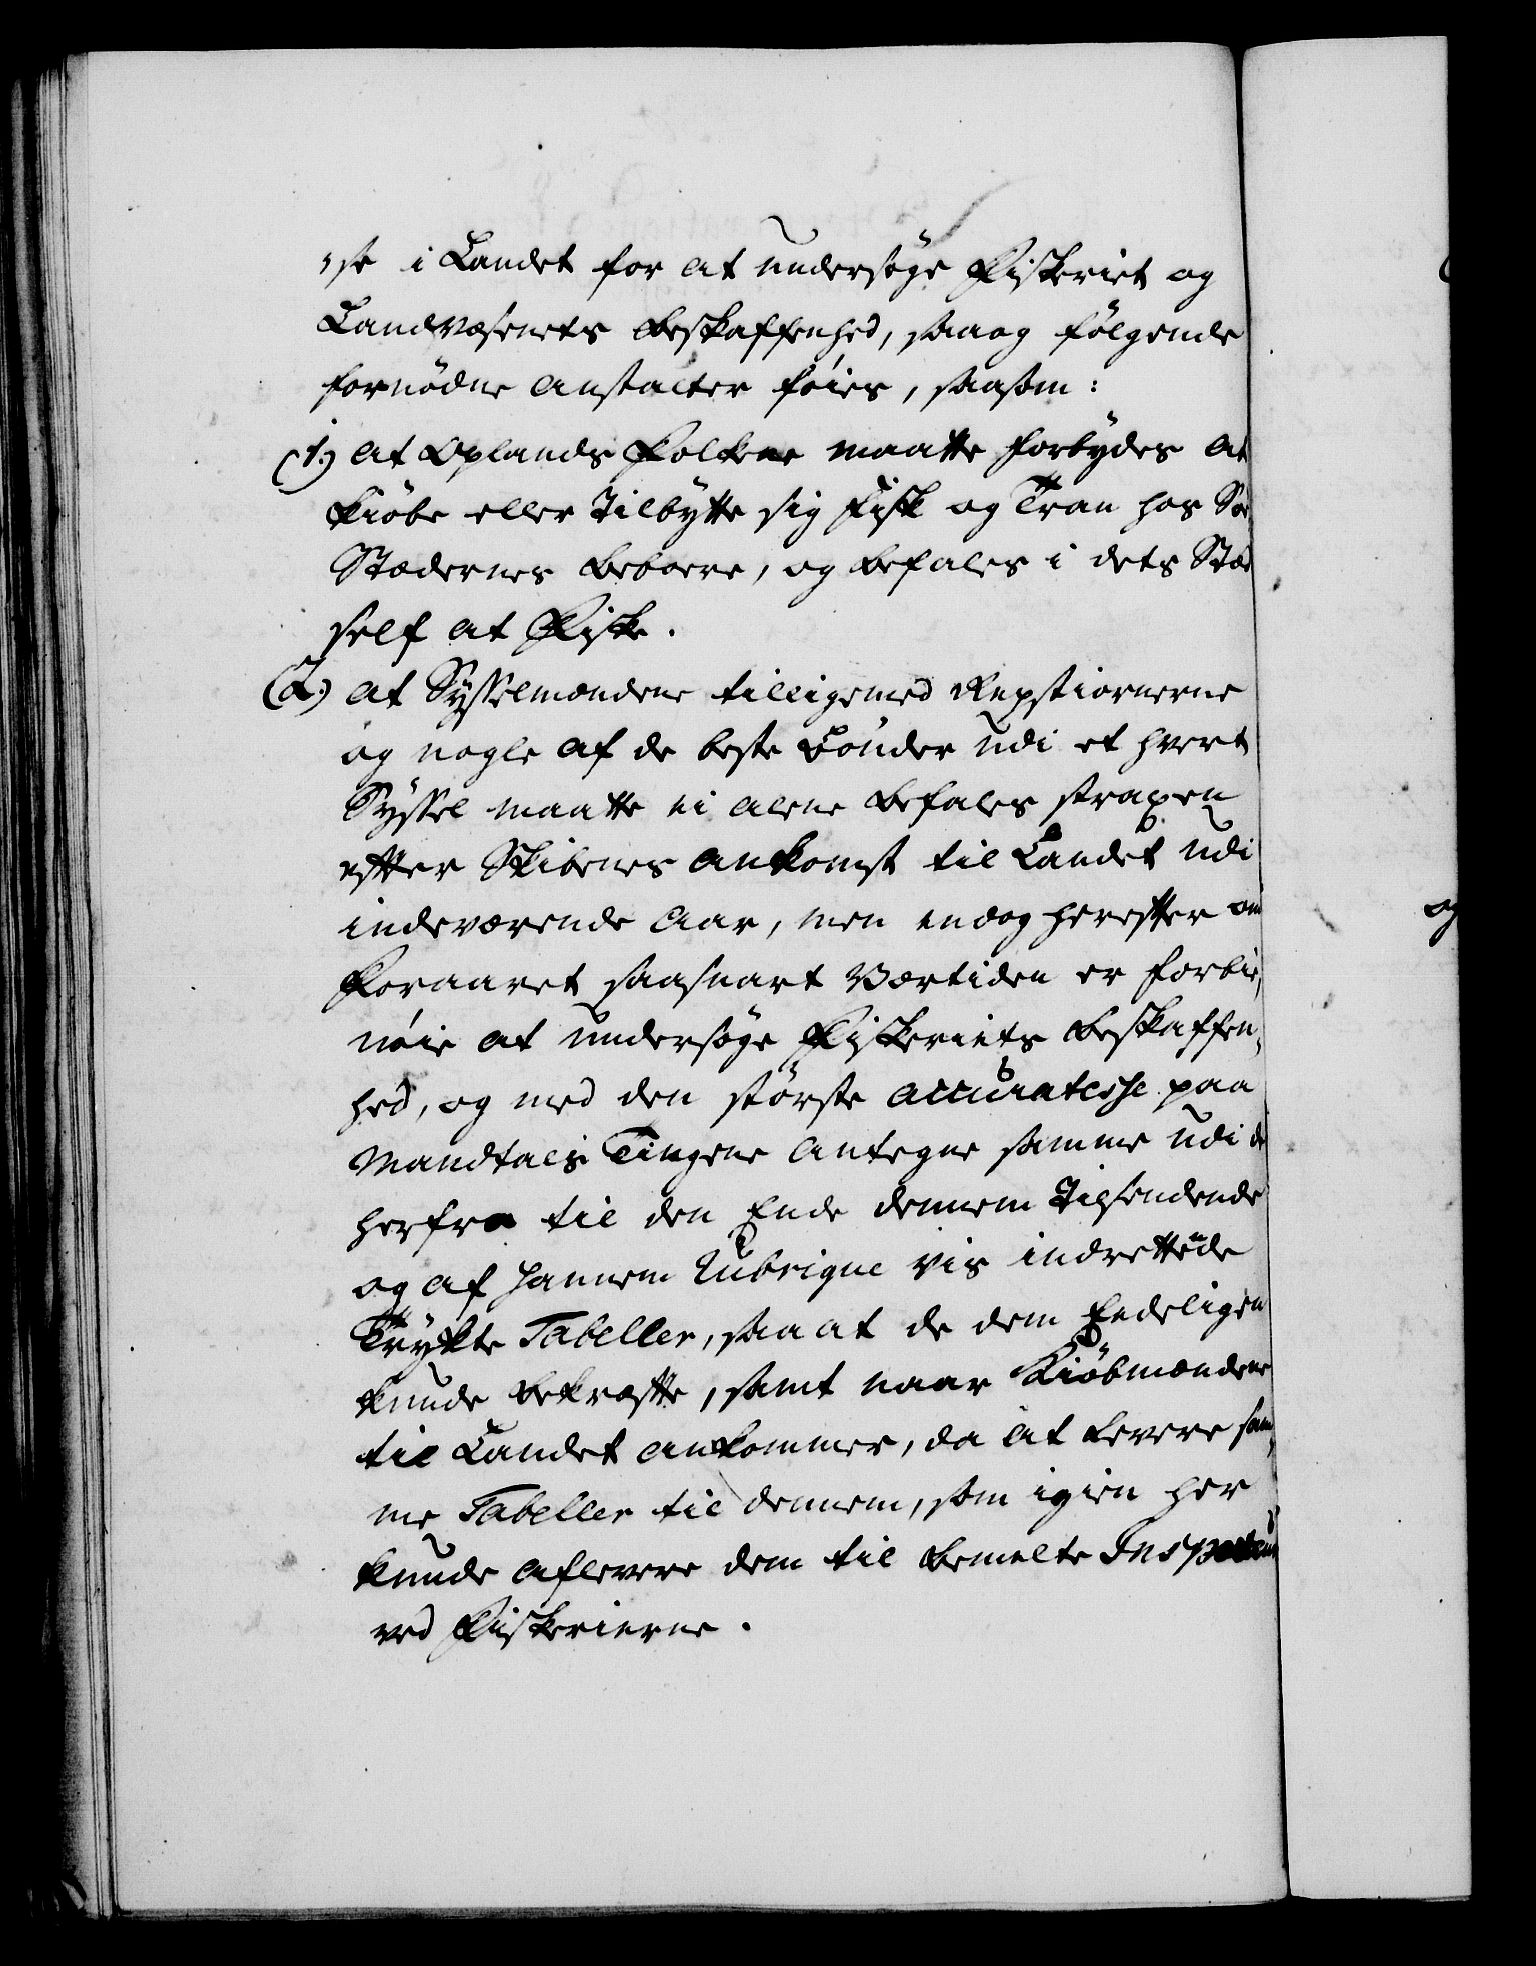 "se i Landet for at undersöge Fiskeriet og
Landvæsenets Beskaffenhed, saa og fölgende
fornödne Anstalter föies, saasom:
(1.) at Oplands Folkene maatte forbydes at
kiöbe eller Tilbytte sig Fisk og Tran hos Söe
Stædernes Beboere, og befales i dets Stæd
self at Fiske.
(2.) at Sysselmændene tilligemed Repstiornerne
og nogle af de beste Bönder udi et hvert
Syssel maatte ei alene befales straxen
efter Skibenes Ankomst til Landet udi
indeværende Aar, men endog herefter om
Foraaret saasnart Værtiden er forbie,
nöie at undersöge Fiskeriets Beskaffen,
hed, og med den störste accuratesse paa
Mandtals Tingene antegne samme udi de
herfra til den Ende dennem Tilsendende
og af hannem Rubrique vis indrettede
Trykte Tabeller, saa at de dem Endeligen
kunde bekræfte, samt naar Kiöbmændene
til Landet ankommer, da at levere sam,
me Tabeller til dennem, som igien her
kunde aflevere dem til bemelte Inspecteur
ved Fiskerierne.
og